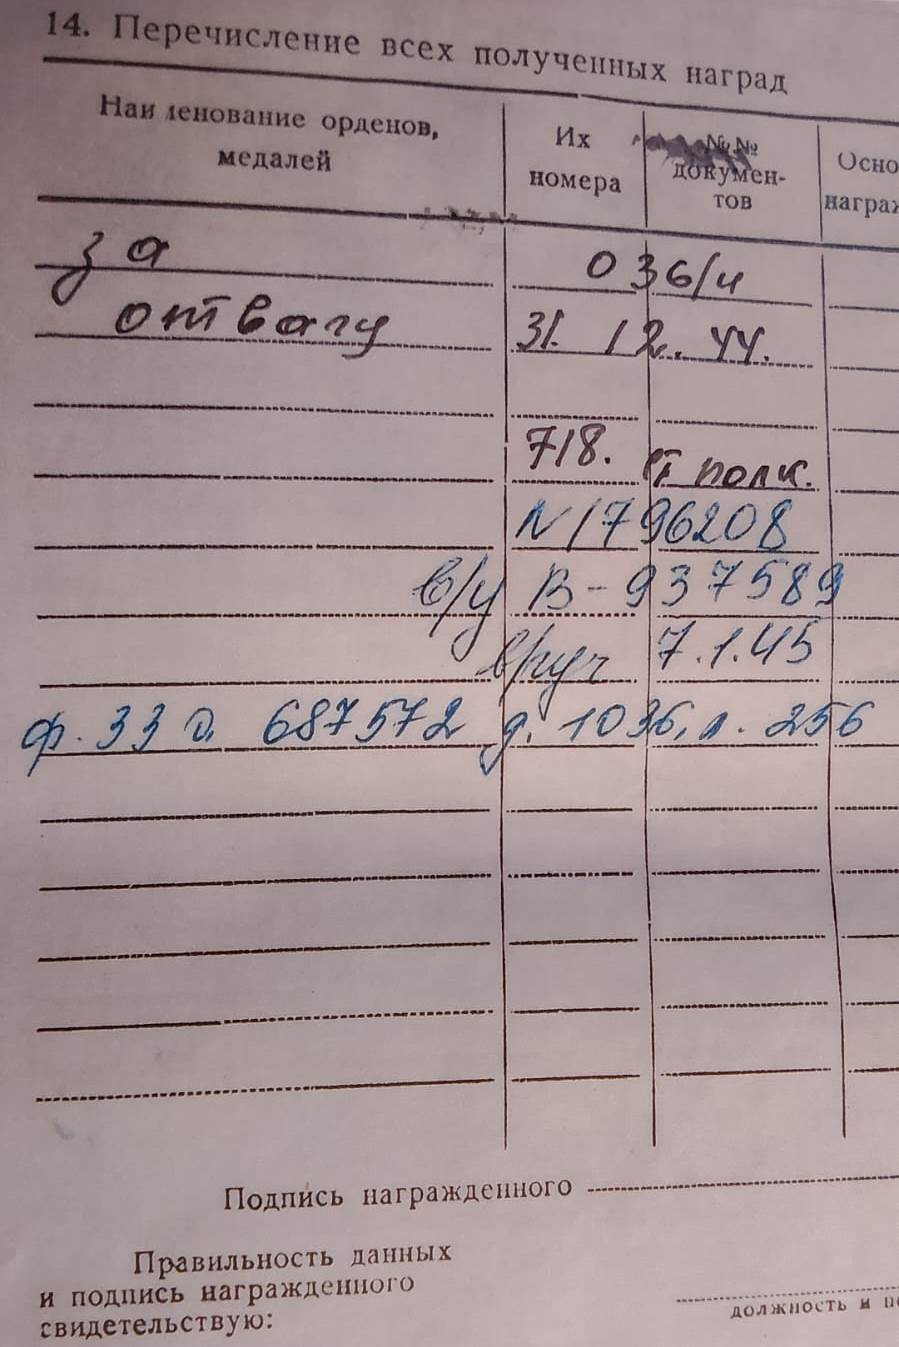 14. Перечисление всех полученных наград
Наименование орденов,
медалей
Их
номера
№№
докумен-
тов
Осно
награж
за
036/н
отвагу
31.12.44.
718. полк.
N 1796208
в/у В-937589
вруч 7.1.45
ф. 33 о. 687572 д. 1036, л. 256
Подпись награжденного
Правильность данных
и подпись награжденного
свидетельствую:
должность и